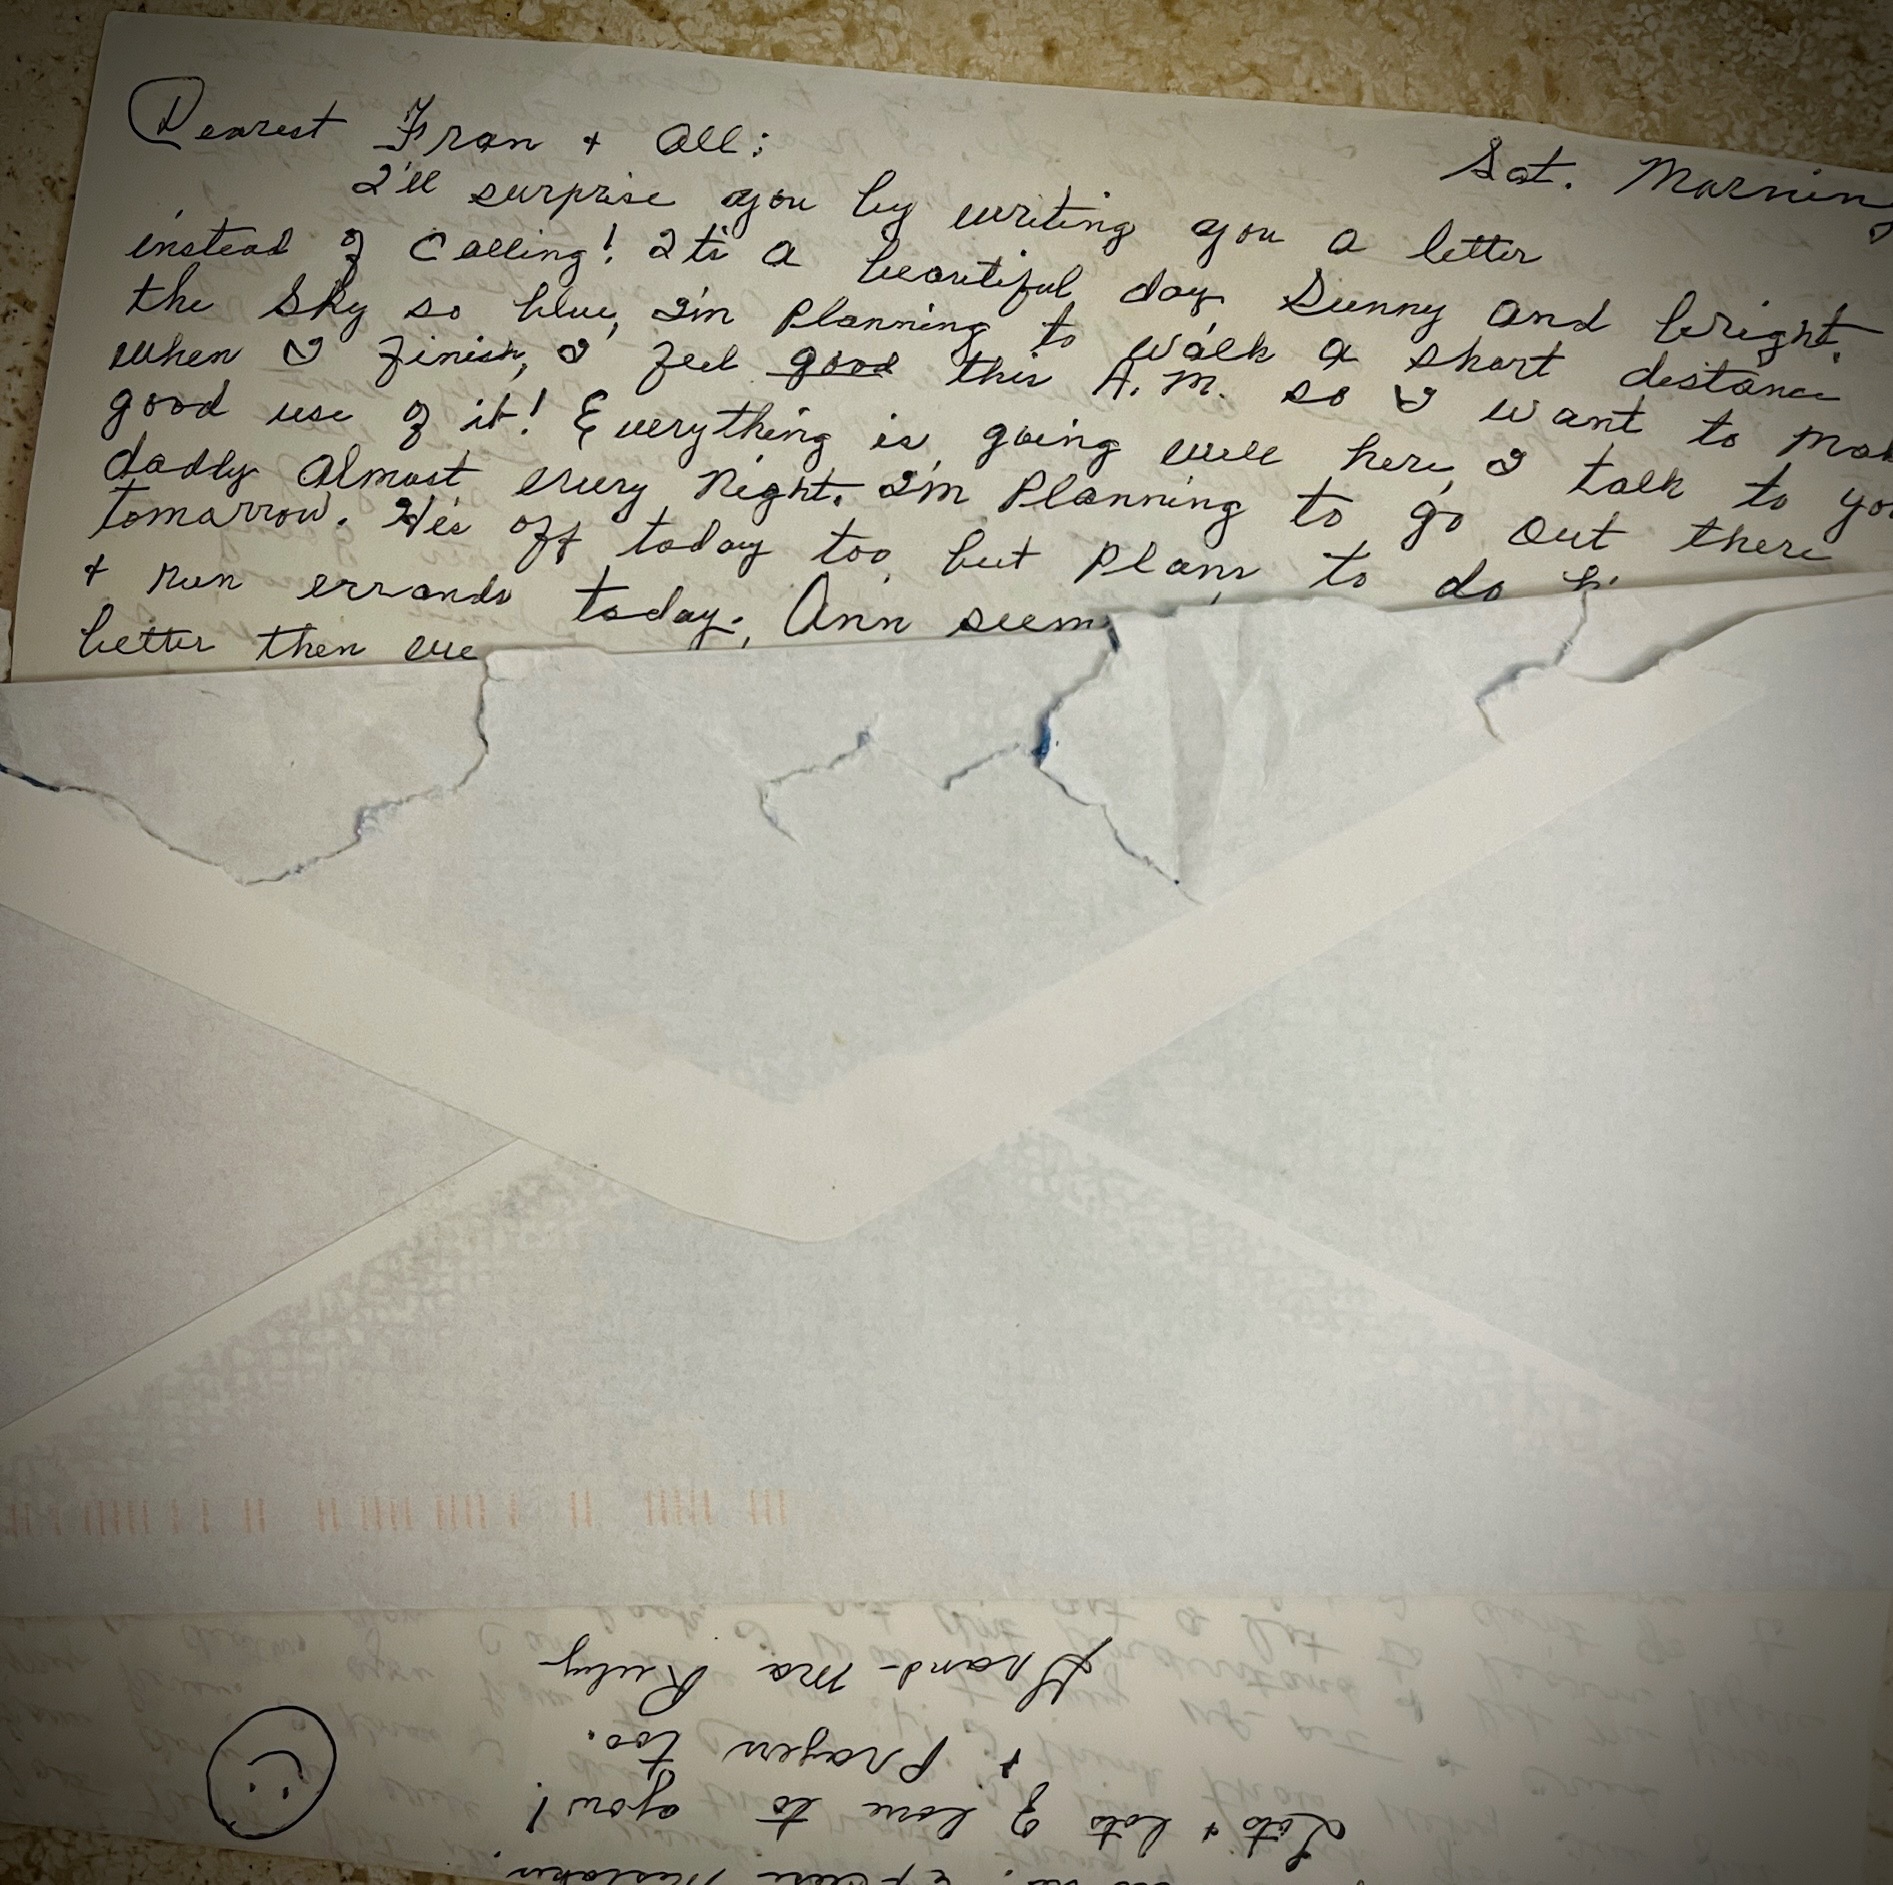 Sat. Morning
Dearest Fran + All:
I'll surprise you by writing you a letter
instead of Calling! It's a beautiful day Sunny and bright,
the Sky so blue, I'm Planning to walk a short distance
when I finish, I feel good this A.M. so I want to mak
good use of it! Everything is going well here, I talk to you
daddy almost every Night. I'm Planning to go out there
tomarrow. He's off today too, but Plans to do
+ Run errands today. Ann seems
better then eve
Mistakes.
Lots + lots of love to you!
+ Prayers too.
Grand-ma Ruby